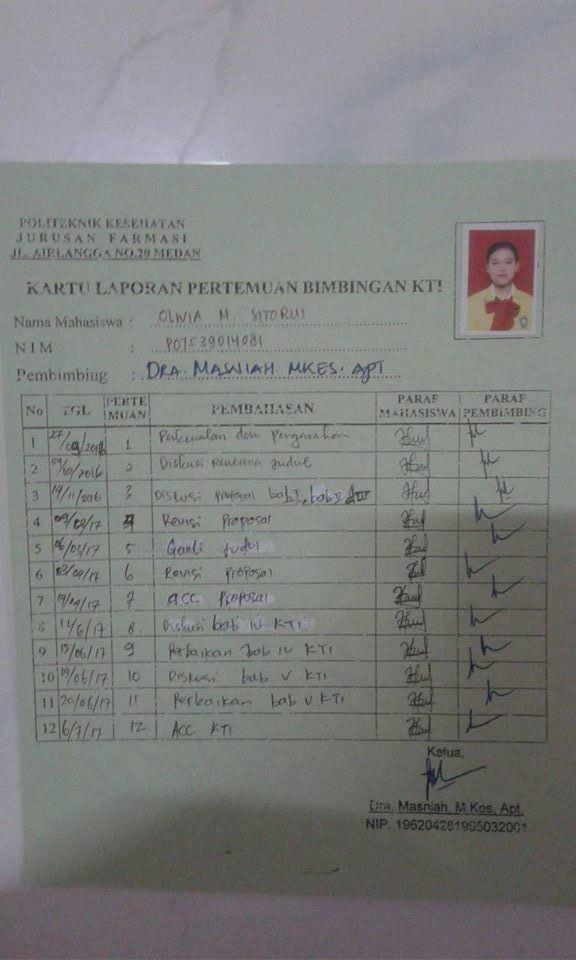 POLITEKNIK KESEHATAN
JURUSAN FARMASI
JL. AIRLANGGA NO.20 MEDAN
KARTU LAPORAN PERTEMUAN BIMBINGAN KTI
Nama Mahasiswa : OLIVIA M. SITORUS
NIM : P07539014081
Pembimbing : DRA. MASNIAH MKES. APT
No TGL PERTEMUAN PEMBAHASAN PARAF MAHASISWA PARAF PEMBIMBING
1 27/09/2016 1 Perkenalan dan Pengarahan
2 /10/2016 2 Diskusi Rencana Judul
3 14/11/2016 3 Diskusi proposal bab I, bab II,
4 09/02/17 4 Revisi Proposal
5 06/03/17 5 Ganti Judul
6 03/04/17 6 Revisi Proposal
7 /17 7 ACC Proposal
8 /6/17 8. Diskusi bab IV KTI
9 15/06/17 9 Perbaikan bab IV KTI
10 19/06/17 10 Diskusi bab V KTI
11 20/06/17 11 Perbaikan bab V KTI
12 6/7/17 12 ACC KTI
Ketua,
Dra. Masniah, M.Kes, Apt.
NIP. 196204281995032001